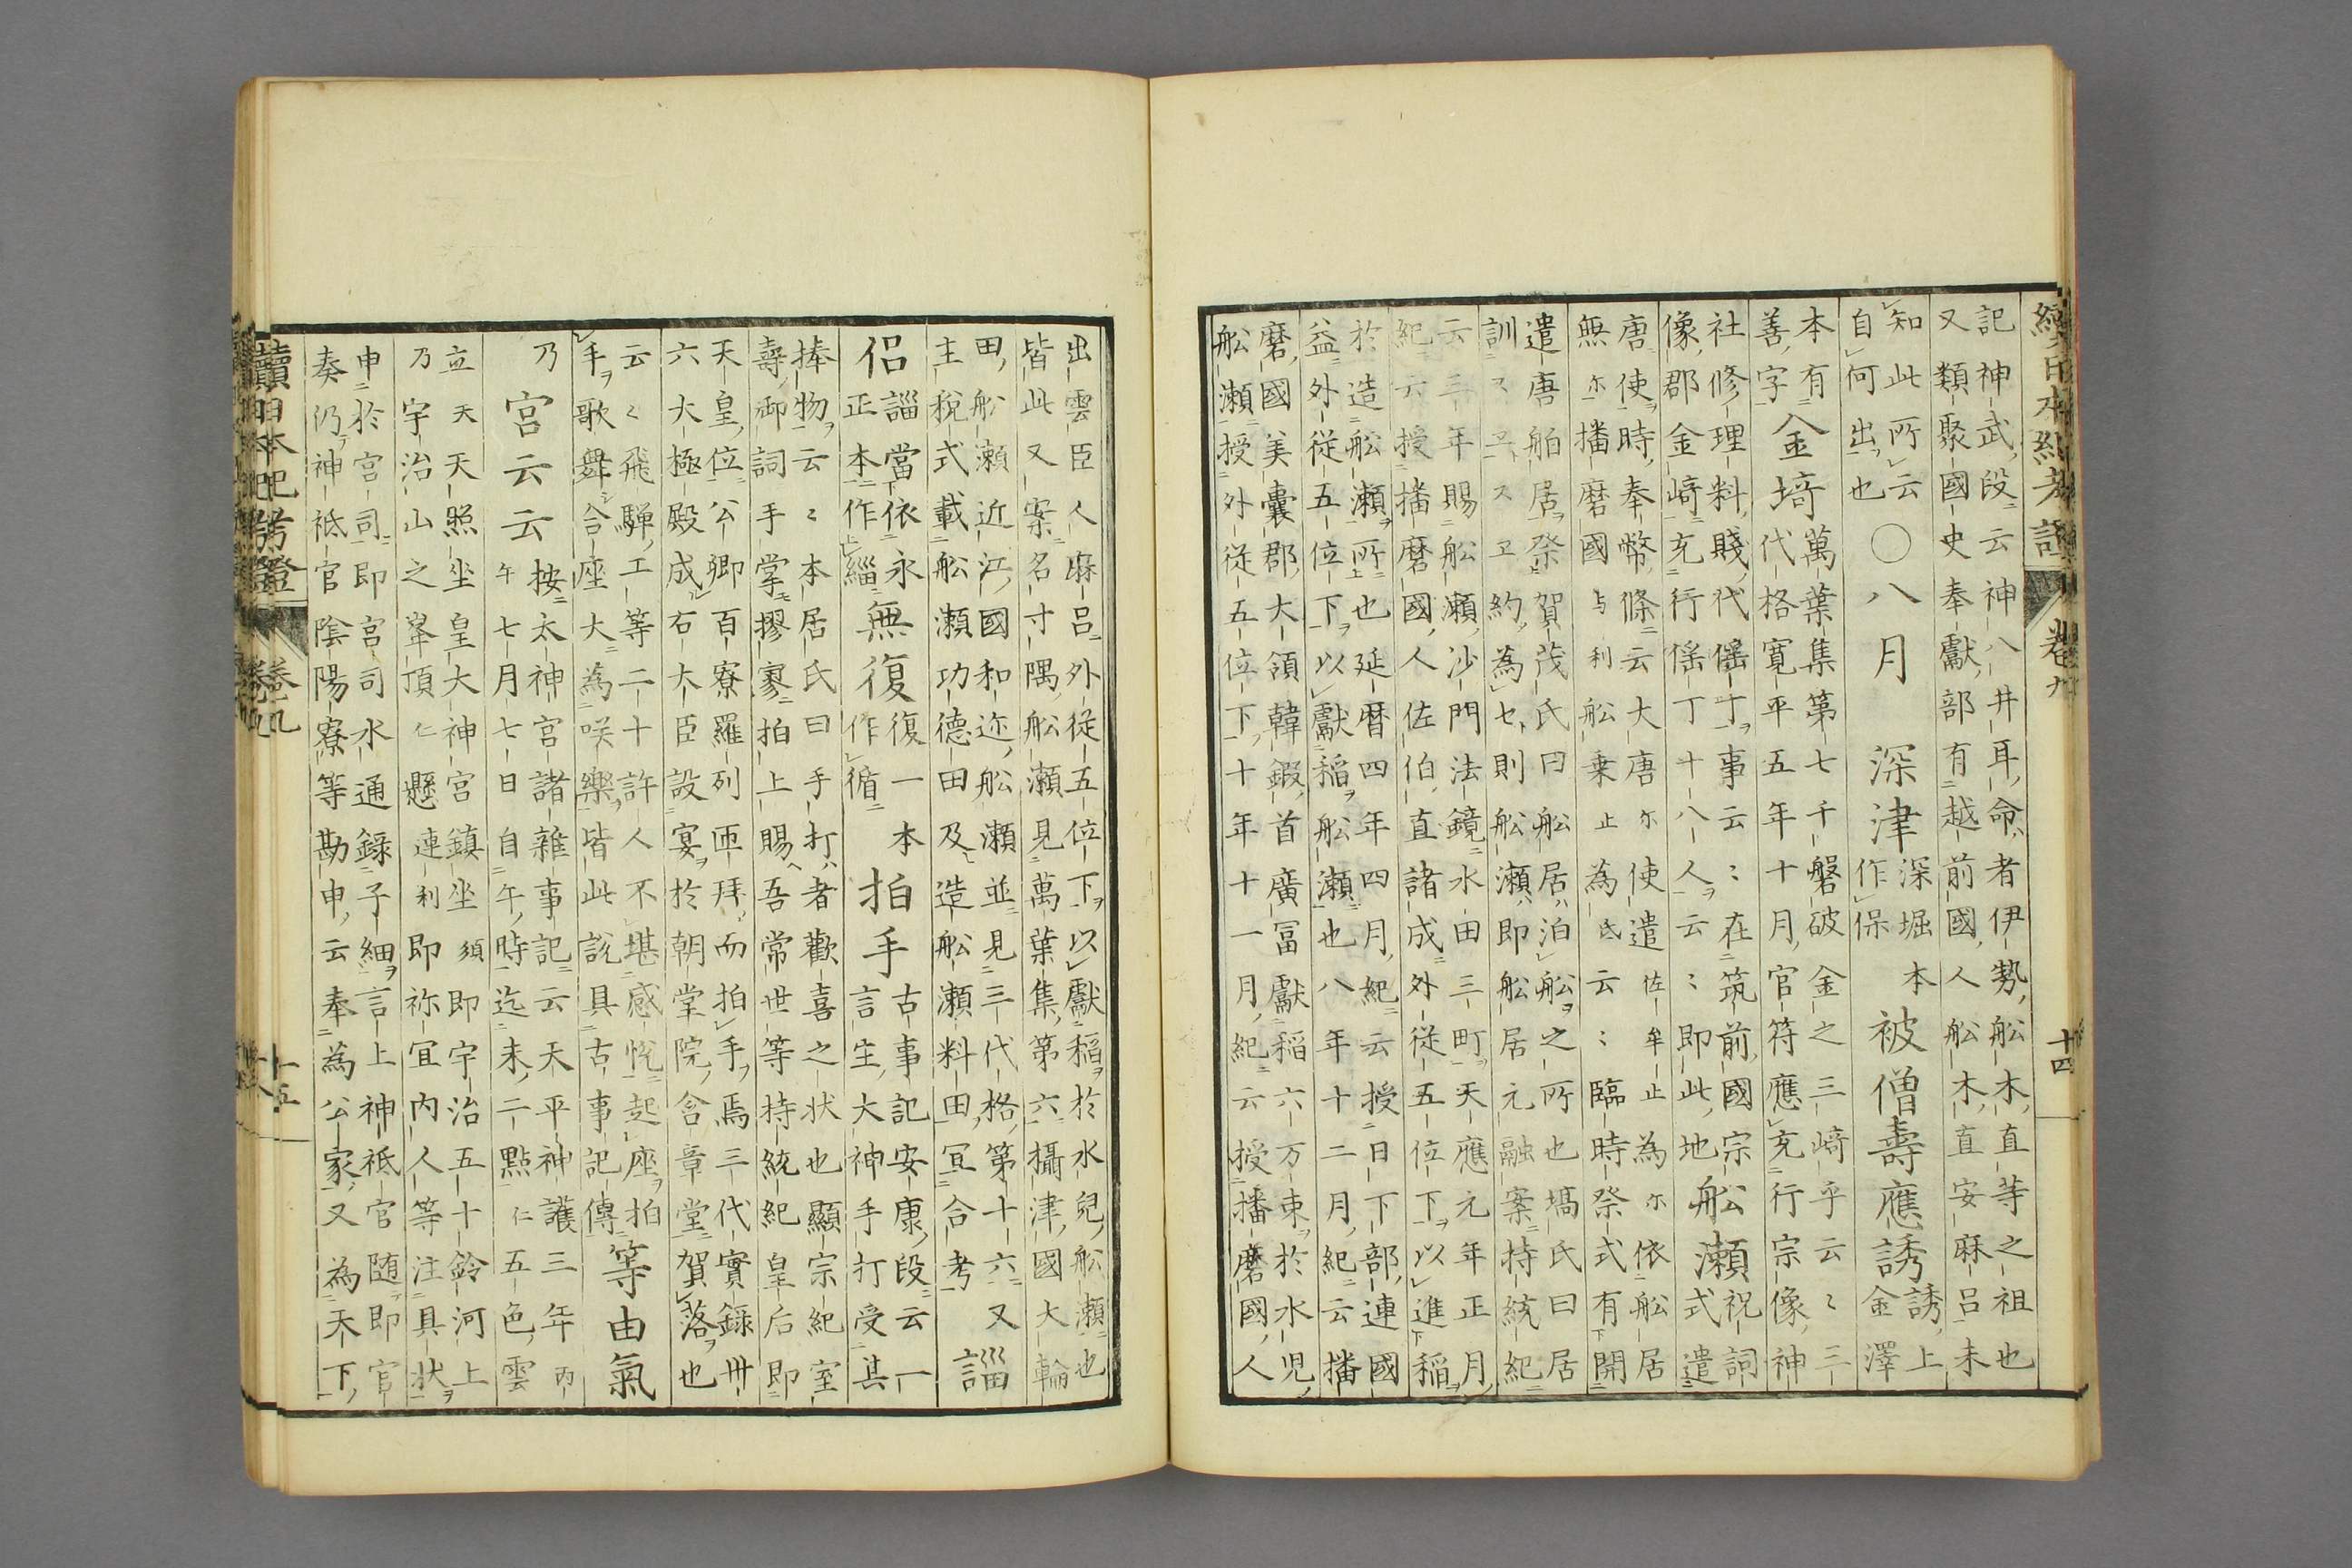 續日本紀考證 卷九 十四
記神武段云神八井耳命者伊勢船木直等之祖也
又類聚國史奉獻部有越前國人船木直安麻呂未
知此所云
自何出也
〇八月 深津 深堀本
作保
被僧壽應誘 誘上
金澤
本有
善字
金埼 萬葉集第七千磐破金之三崎乎云云三
代格寬平五年十月官符應充行宗像神
社修理料賤代傜丁事云云在筑前國宗
像郡金崎充行傜丁十八人云云即此地
船瀬 祝詞
式遣
唐使時奉幣條云大唐尓使遣佐牟止為尓依船居
無尓播磨國与利船乗止為氐云云臨時祭式有開
遣唐舶居祭賀茂氏曰船居泊船之所也塙氏曰居
訓スヱスヱ約為セ則船瀬即船居元融案持統紀
云三年賜船瀬沙門法鏡水田三町天應元年正月
紀云授播磨國人佐伯直諸成外従五位下以進稲
於造船瀬所也延暦四年四月紀云授日下部連國
益外従五位下以獻稲船瀬也八年十二月紀云播
磨國美嚢郡大領韓鍛首廣冨獻稲六万束於水児
船瀬授外従五位下十年十一月紀云授播磨國人
出雲臣人麻呂外従五位下以獻稲於水兒船瀬也
皆此又案名寸隅船瀬見萬葉集第六攝津國大輪
田船瀬近江國和迩船瀬並見三代格第十六又
主税式載船瀬功德田及造船瀬料田宜合考
謟
侶 謟當依永
正本作緇
無復 復一本
作循
拍手 古事記安康段云一
言主大神手打受其
捧物云云本居氏曰手打者歡喜之状也顯宗紀室
壽御詞手掌摎寥拍上賜吾常世等持統紀皇后即
天皇位公卿百寮羅列匝拜而拍手焉三代實錄卌
六大極殿成右大臣設宴於朝堂院含章堂賀落也
云云飛驒工等二十許人不堪感悅起座拍
手歌舞合座大為咲樂皆此說具古事記傳
等由氣
乃宮云云 按太神宮諸雜事記云天平神護三年丙
午七月七日自午時迄未二點仁五色雲
立天天照坐皇大神宮鎮坐須即宇治五十鈴河上
乃宇治山之峯頂仁懸連利即祢宜内人等注具状
申於宮司即宮司水通録子細言上神祇官随即官
奏仍神祇官陰陽寮等勘申云奉為公家又為天下
續日本紀考證 卷九 十五